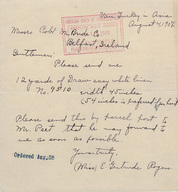 Turkey in Asia
August 4, 190
Messrs Robt McBride Co.
Belfast, Ireland
Gentlemen:
Please send me
12 yards of Drawn assy white linen
No. 9510. width 45 inches
(54 inches is preferred if on hand
Please send this by parcel post to
Mr. Peet that he may forward to
me as soon as possible
Yours truly
(Miss) E Gertrude Rogers
Ordered Aug. 28